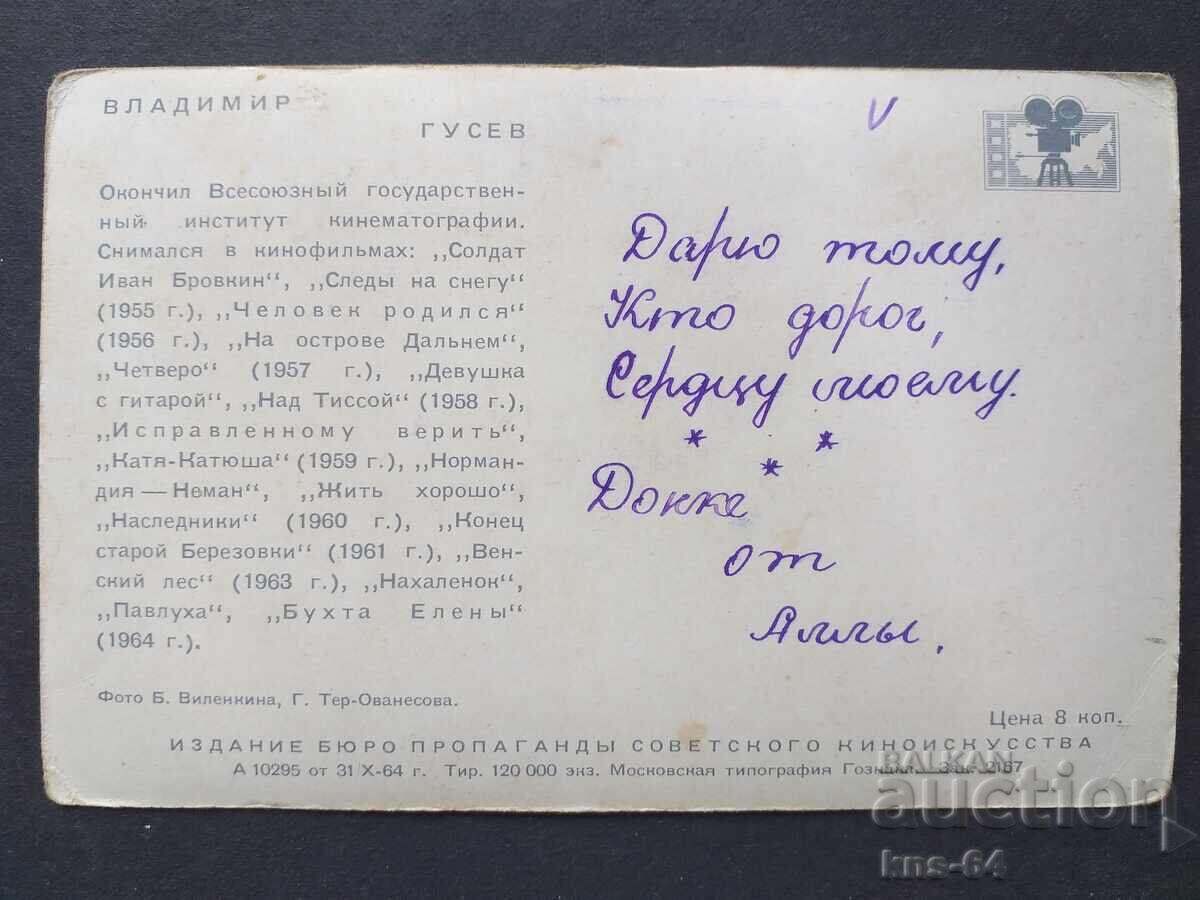 ВЛАДИМИР
ГУСЕВ
Окончил Всесоюзный государствен-
ный институт кинематографии.
Снимался в кинофильмах: „Солдат
Иван Бровкин“, „Следы на снегу“
(1955 г.), „Человек родился“
(1956 г.), „На острове Дальнем“,
„Четверо“ (1957 г.), „Девушка
с гитарой“, „Над Тиссой“ (1958 г.),
„Исправленному верить“,
„Катя-Катюша“ (1959 г.), „Норман-
дия — Неман“, „Жить хорошо“,
„Наследники“ (1960 г.), „Конец
старой Березовки“ (1961 г.), „Вен-
ский лес“ (1963 г.), „Нахаленок“,
„Павлуха“, „Бухта Елены“
(1964 г.).
Фото Б. Виленкина, Г. Тер-Ованесова.
V
Дарю тому,
Кто дорог,
Сердцу моему.
* * *
Донке
от
Аллы.
Цена 8 коп.
ИЗДАНИЕ БЮРО ПРОПАГАНДЫ СОВЕТСКОГО КИНОИСКУССТВА
А 10295 от 31/X-64 г. Тир. 120 000 экз. Московская типография Гознака. Зак. 2167
BALKAN
auction
kns-64